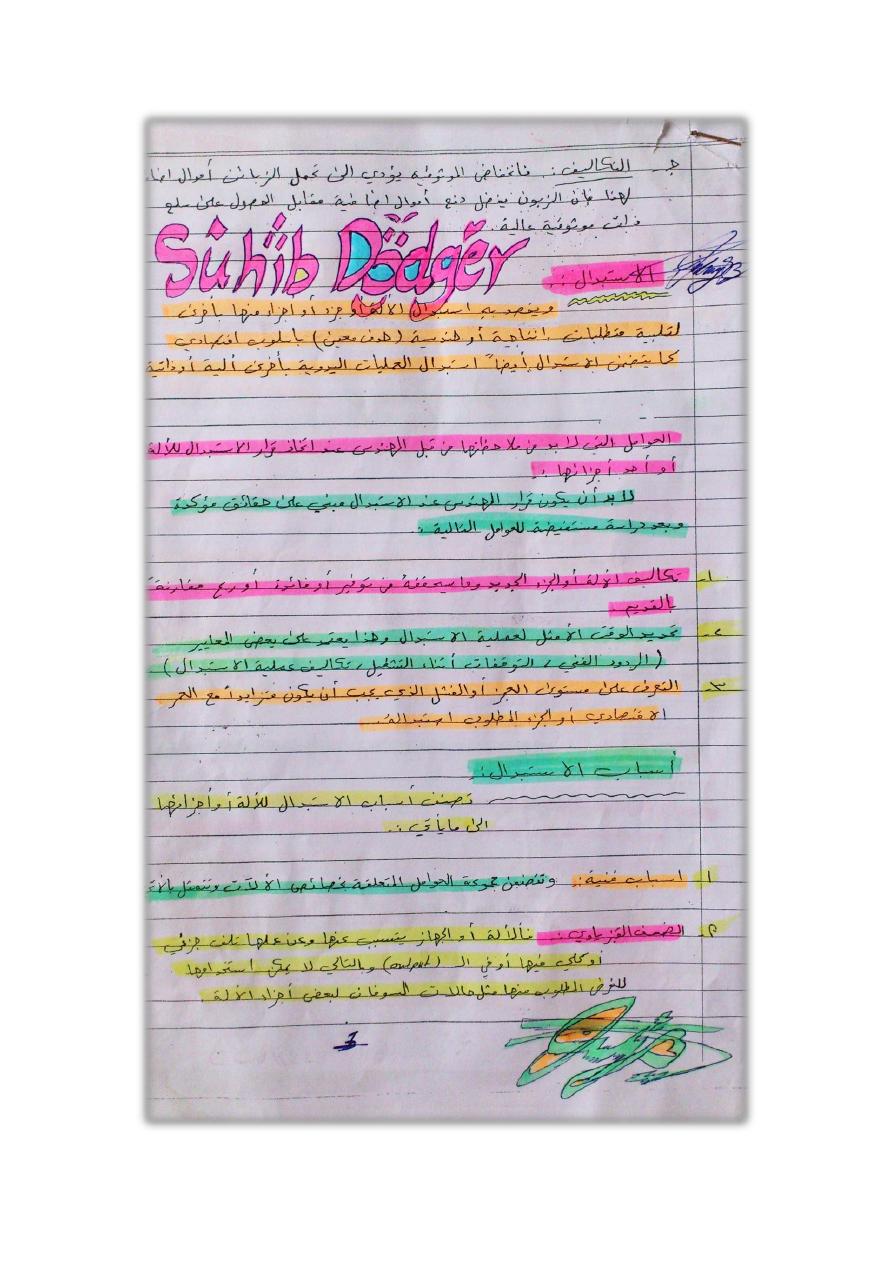 جـ- التكاليف: فانخفاض الموثوقية يؤدي الى تحمل الزبائن أموال
لهذا فإن الزبون يفضل دفع أموال اضافية مقابل الحصول على سلع
ذات موثوقية عالية.
Suhib Dodger
الاستبدال:
ويقصد به استبدال الألة أو جزء أو اجزاء منها بأخرى
لتلبية متطلبات انتاجية أو هندسية (هدف معين) بأسلوب اقتصادي
كما يتضمن الاستبدال أيضاً استبدال العمليات اليدوية بأخرى ألية أو ذاتية
العوامل التي لابد من ملاحظتها من قبل المهندس عند اتخاذ قرار الاستبدال للألة
أو أحد أجزائها:
لابد أن يكون قرار المهندس عند الاستبدال مبني على حقائق مؤكدة
وبعد دراسة مستفيضة للعوامل التالية:
١- تكاليف الألة أو الجزء الجديد وما سيحققه من توفير أو فائدة أو ربح مقارنةً
بالقديم.
٢- تحديد الوقت الأمثل لعملية الاستبدال وهذا يعتمد على بعض المعايير
(المردود الفني، التوقفات أثناء التشغيل، تكاليف عملية الاستبدال)
٣- التعرف على مستويات العجز أو الفشل الذي يجب أن يكون متزايداً مع العمر
الاقتصادي أو الجزء المطلوب استبداله.
أسباب الاستبدال:
تصنف أسباب الاستبدال للألة أو أجزائها
الى ما يأتي:
١- اسباب فنية: وتتضمن مجموعة العوامل المتعلقة بخصائص الألات وتتمثل
٢- الضعف الفيزياوي: فالألة أو الجهاز يتسبب عنها وعن عملها تلف جزئي
أو كلي فيها أو في الـ (output) وبالتالي لا يمكن استخدامها
للغرض المطلوب منها مثل حالات السوفان لبعض أجزاء الألة
3